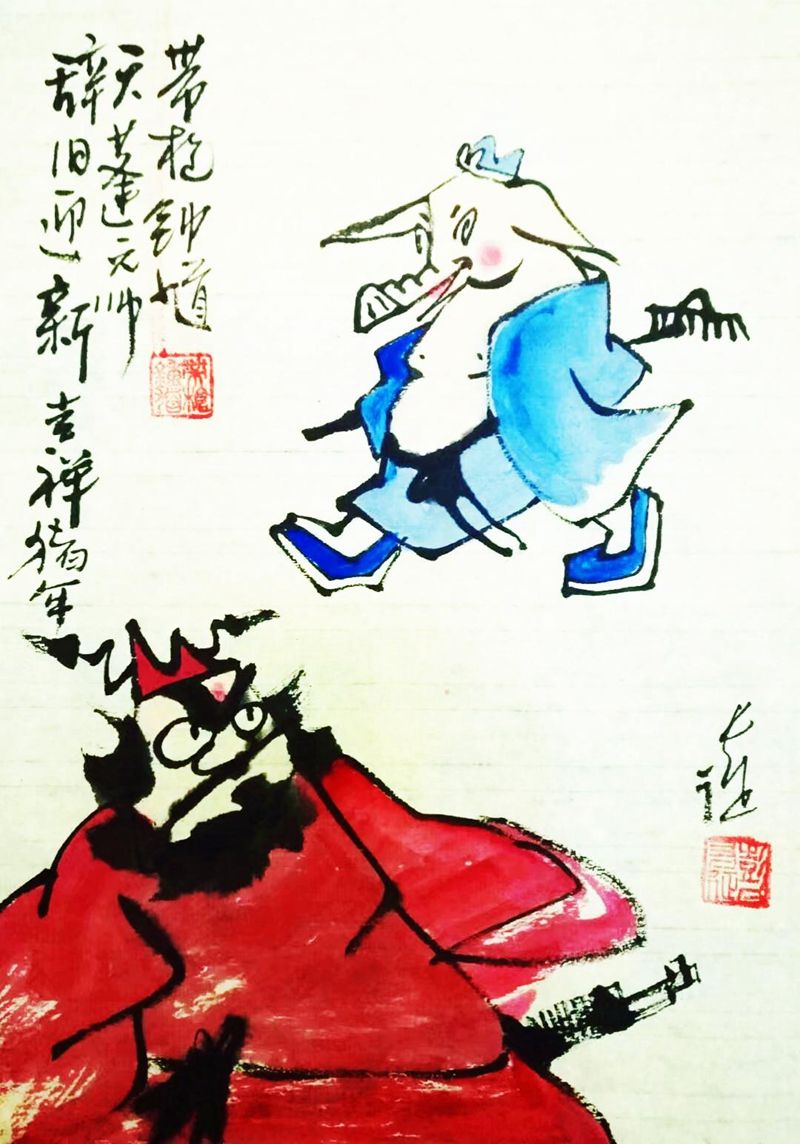 带枪钟馗
天蓬元帅
辞旧迎新 吉祥猪年